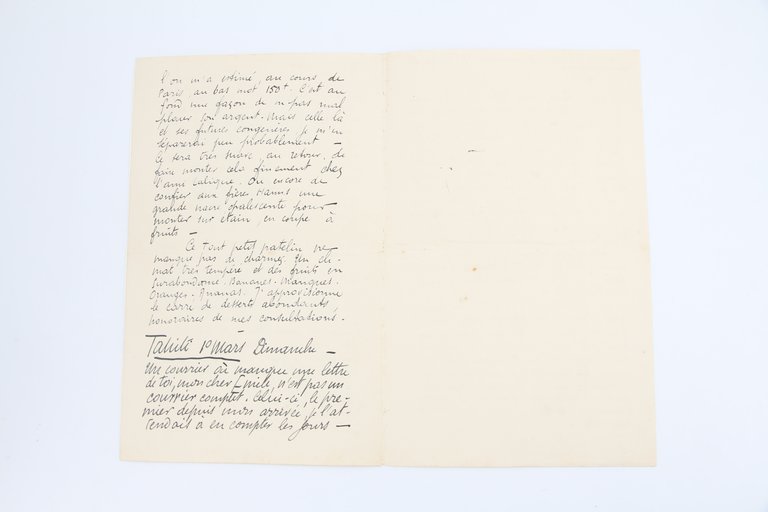 l'on m'a estimé, au cours, de
Paris au bas mot 150f. C'est au
fond une façon de n' pas mal
placer son argent. Mais celle là
et ses futures congénères je m'en
séparerai peu probablement —
Ce sera très marc, au retour, de
faire monter cela finement chez
l'ami calique. Ou encore de
confier aux frères Nanns une
grande nacre opalescente pour
monter sur étain, en coupe à
fruits —
Ce tout petit patelin ne
manque pas de charmes. Un cli-
mat très tempéré et des fruits en
surabondance. Bananes. Mangues.
Oranges. Ananas. J'approvisionne
le carré de desserts abondants
honoraires de mes consultations.
Tahiti 1er Mars Dimanche —
Un courrier où manque une lettre
de toi, mon cher Emile, n'est pas un
courrier complet. Celui-ci, le pre-
mier depuis mon arrivée, je l'at-
tendais à en compter les jours —